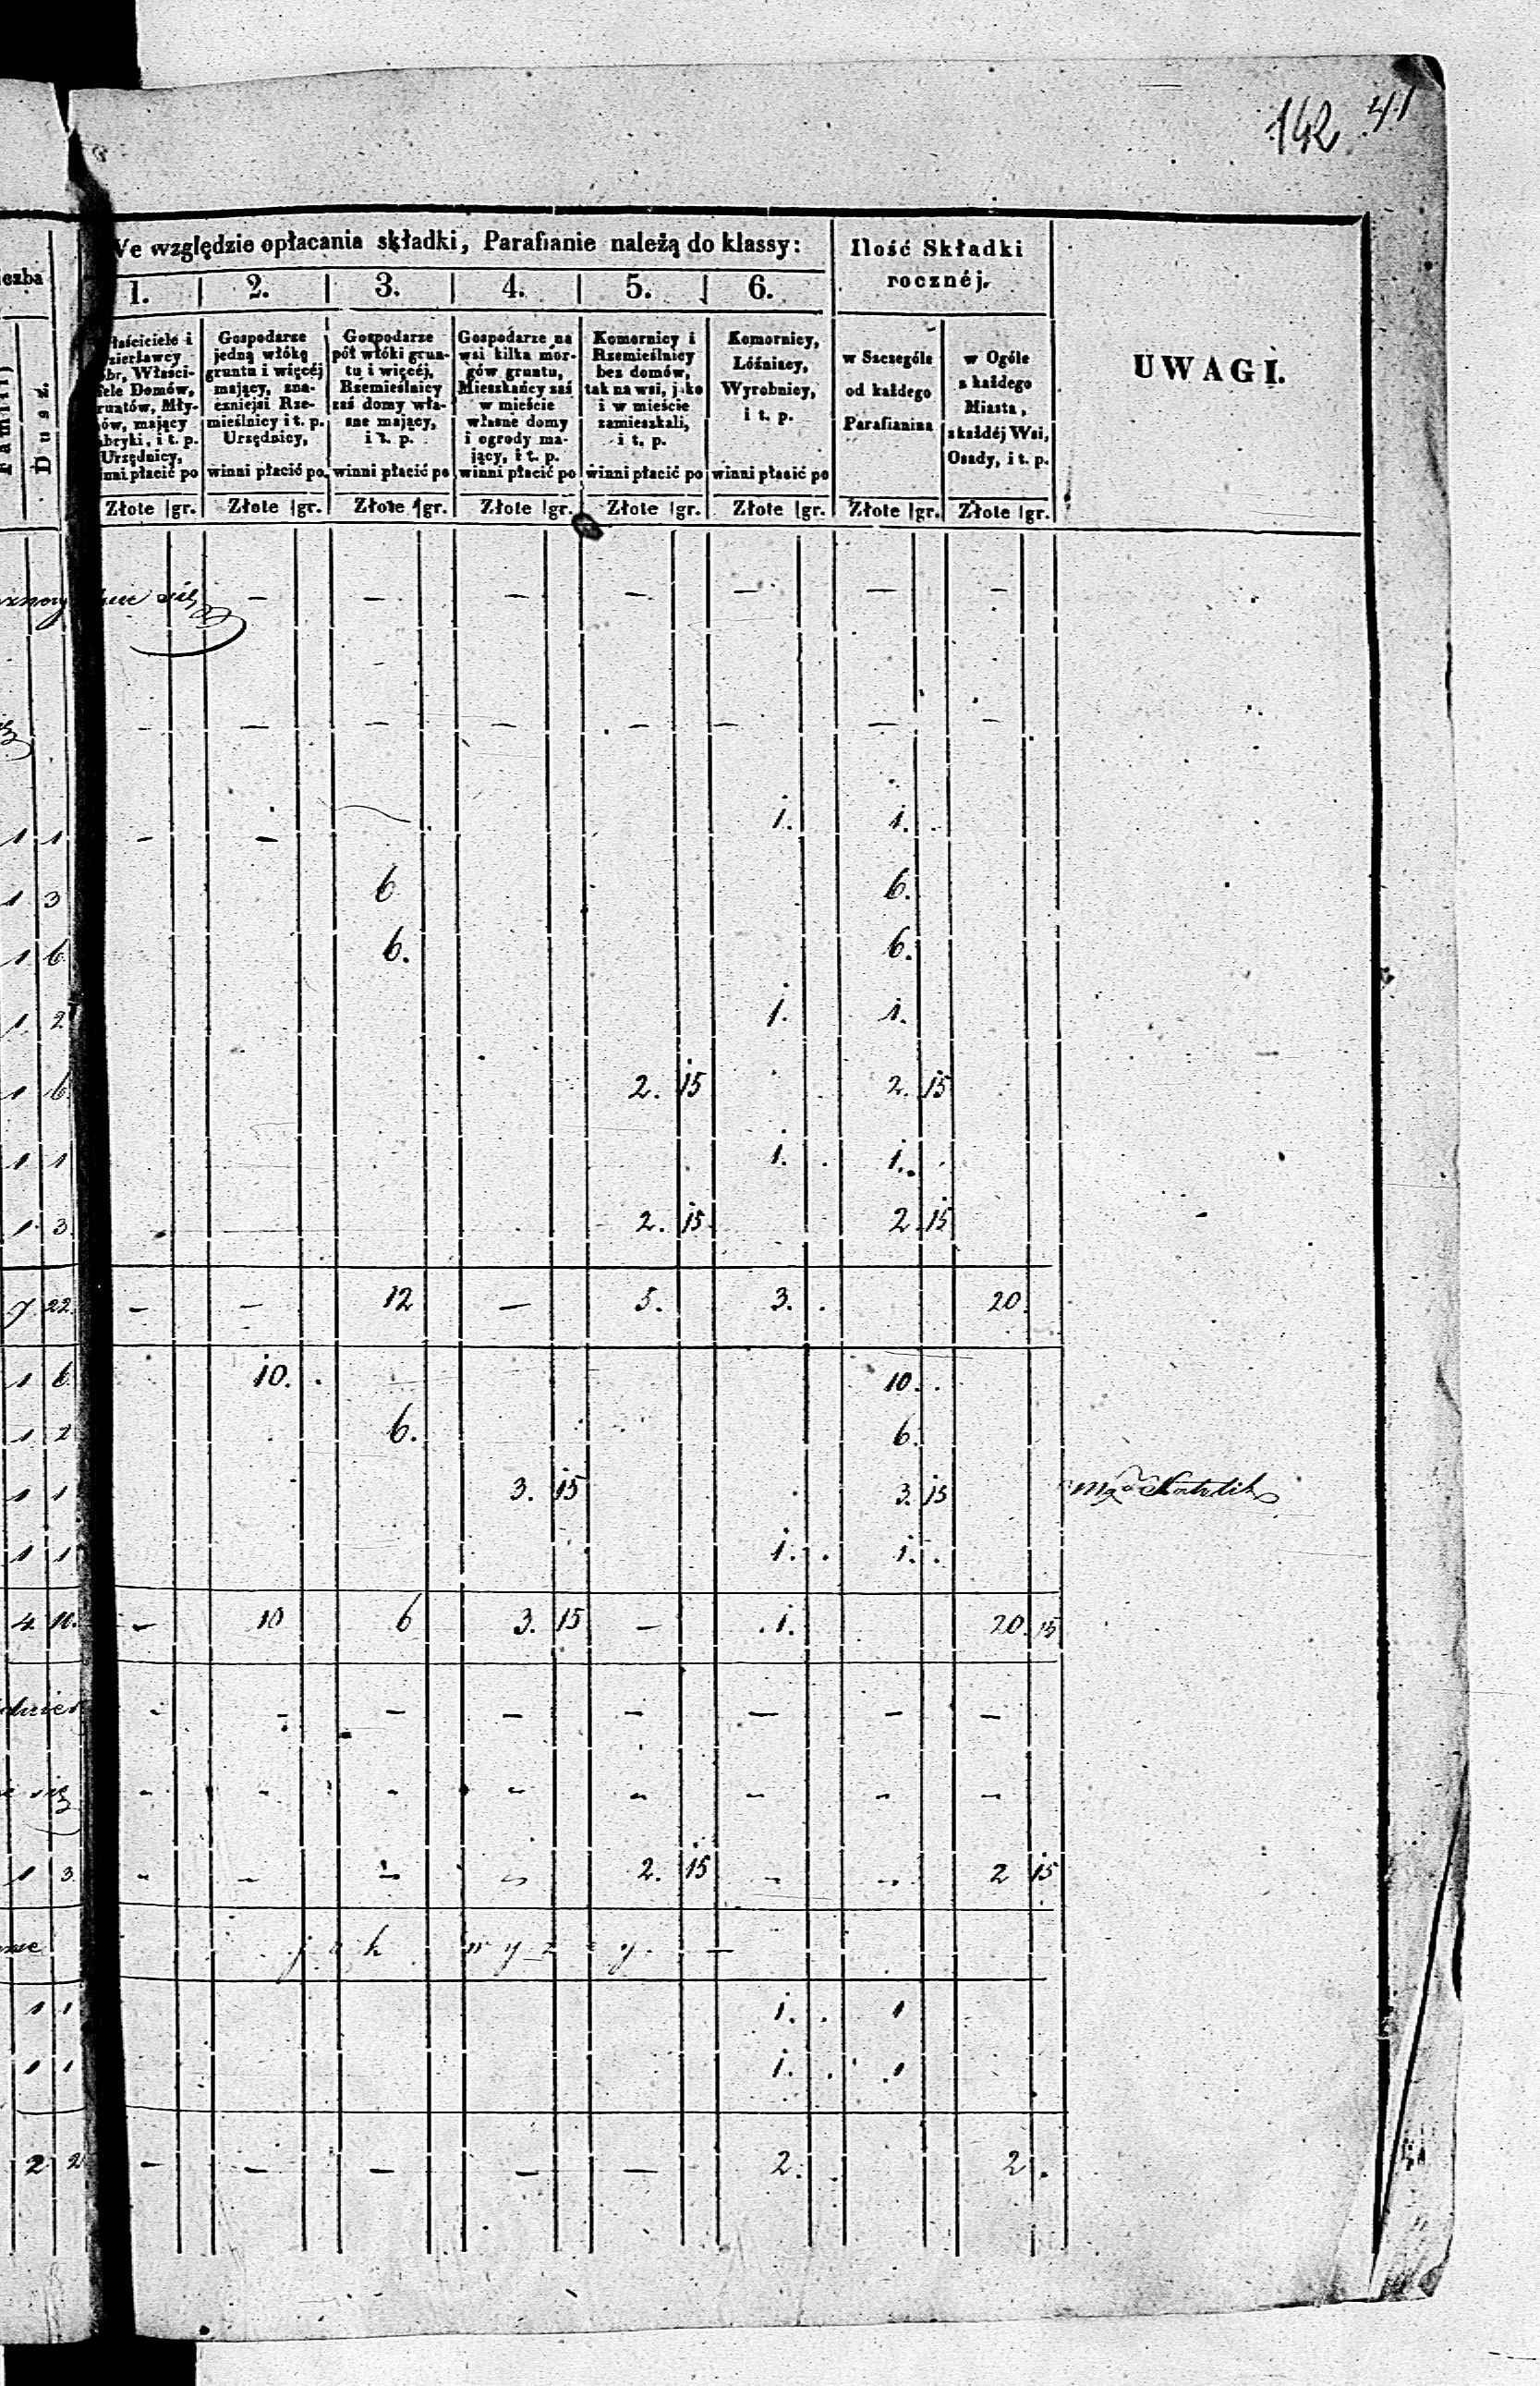 142 41
We względzie opłacania składki, Parafianie należą do klassy:
Ilość Składki
rocznéj.
UWAGI.
1. 2. 3. 4. 5. 6.
Dusz.
Właściciele i
Gospodarze
jedną włókę
gruntu i więcéj
mający, zna-
czniejsi Rze-
mieślnicy i t. p.
Urzędnicy,
winni płacić po
Gospodarze
pół włóki grun-
tu i więcéj,
Rzemieślnicy
zaś domy wła-
sne mający,
i t. p.
winni płacić po
Gospodarze na
wsi kilka mor-
gów gruntu,
Mieszkańcy zaś
w mieście
własne domy
i ogrody ma-
jący, i t. p.
winni płacić po
Komornicy i
Rzemieślnicy
bez domów,
tak na wsi, jako
i w mieście
zamieszkali,
i t. p.
winni płacić po
Komornicy,
Lóźnicy,
Wyrobnicy,
i t. p.
winni płacić po
w Szczególe
od każdego
Parafianina
w Ogóle
z każdego
Miasta,
z każdéj Wsi,
Osady, i t. p.
Złote gr. Złote gr. Złote gr. Złote gr. Złote gr. Złote gr. Złote gr. Złote gr.
się — — — — — — —
- — — — — — — —
1 1 - - 1. 1.
1 3 6 6.
1 6 6. 6.
1 2 1. 1.
1 6 2. 15 2. 15
1 1 1. 1.
1 3 2. 15 2 15
7 22. — — 12 — 5. 3. 20.
1 6 10. 10.
1 2 6. 6.
1 1 3. 15 3. 15
1 1 1. 1.
4. 10. — 10 6 3. 15 — 1. 20. 15
- - — — — — — —
się - - - - - - - -
1 3. - - - - 2. 15 - - 2 15
jak wyżéy. —
1 1 1. 1
1 1 1. 1
2 2 — — — — — 2. 2.